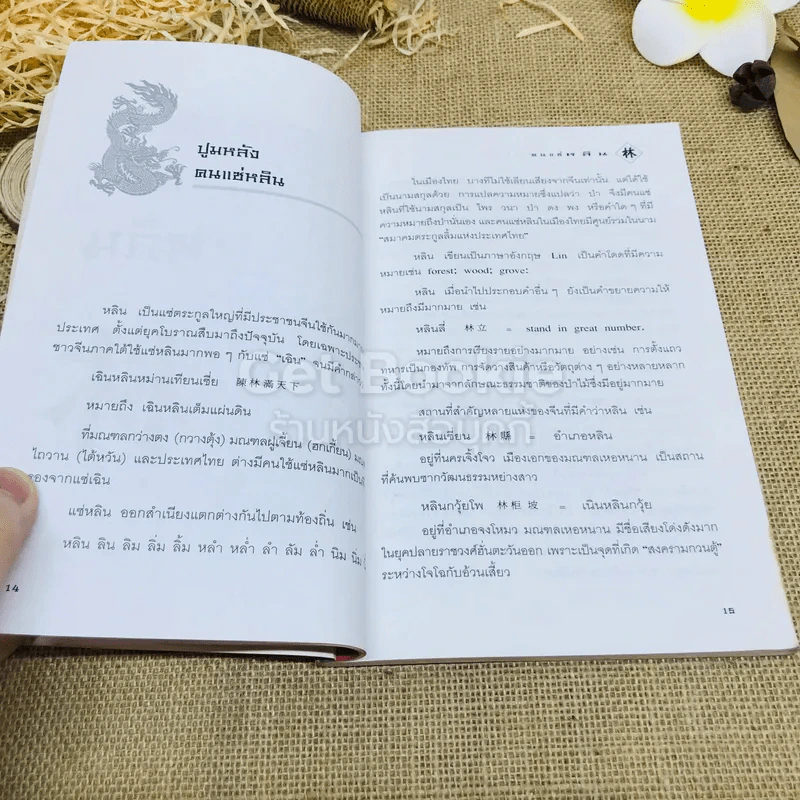 ปูมหลัง
คนแซ่หลิน
หลิน เป็นแซ่ตระกูลใหญ่ที่มีประชาชนจีนใช้กันมากมาย
ประเทศ ตั้งแต่ยุคโบราณสืบมาถึงปัจจุบัน โดยเฉพาะประช
ชาวจีนภาคใต้ใช้แซ่หลินมากพอ ๆ กับแซ่ "เฉิน" จนมีคำกล่าว
เฉินหลินหม่านเทียนเซี่ย 陳林滿天下
หมายถึง เฉินหลินเต็มแผ่นดิน
ที่มณฑลกว่างตง (กวางตุ้ง) มณฑลฝูเจี้ยน (ฮกเกี้ยน) มณ
ไถวาน (ไต้หวัน) และประเทศไทย ต่างมีคนใช้แซ่หลินมากเป็น
รองจากแซ่เฉิน
แซ่หลิน ออกสำเนียงแตกต่างกันไปตามท้องถิ่น เช่น
หลิน ลิน ลิม ลิ่ม ลิ้ม หลำ หล่ำ ลำ ลัม ล่ำ นิม นิ่ม
14
คนแซ่หลิน 林
ในเมืองไทย บางทีไม่ใช้เลียนเสียงจากจีนเท่านั้น แต่ได้ใช้
เป็นนามสกุลด้วย การแปลความหมายซึ่งแปลว่า ป่า จึงมีคนแซ่
หลินที่ใช้นามสกุลเป็น ไพร วนา ป่า ดง พง หรือคำใด ๆ ที่มี
ความหมายถึงป่านั่นเอง และคนแซ่หลินในเมืองไทยมีศูนย์รวมในนาม
"สมาคมตระกูลลิ้มแห่งประเทศไทย"
หลิน เขียนเป็นภาษาอังกฤษ Lin เป็นคำโดดที่มีความ
หมายเช่น forest; wood; grove:
หลิน เมื่อนำไปประกอบคำอื่น ๆ ยังเป็นคำขยายความให้
หมายถึงมีมากมาย เช่น
หลินลี่ 林立 = stand in great number.
หมายถึงการเรียงรายอย่างมากมาย อย่างเช่น การตั้งแถว
ทหารเป็นกองทัพ การจัดวางสินค้าหรือวัตถุต่าง ๆ อย่างหลากหลาก
ทั้งนี้โดยนำมาจากลักษณะธรรมชาติของป่าไม้ซึ่งมีอยู่มากมาย
สถานที่สำคัญหลายแห่งของจีนที่มีคำว่าหลิน เช่น
หลินเซี่ยน 林縣 = อำเภอหลิน
อยู่ที่นครเจิ้งโจว เมืองเอกของมณฑลเหอหนาน เป็นสถาน
ที่ค้นพบซากวัฒนธรรมหย่างสาว
หลินกวุ้ยโพ 林柜坡 = เนินหลินกวุ้ย
อยู่ที่อำเภอจงโหมว มณฑลเหอหนาน มีชื่อเสียงโด่งดังมาก
ในยุคปลายราชวงศ์ฮั่นตะวันออก เพราะเป็นจุดที่เกิด "สงครามกวนตู้"
ระหว่างโจโฉกับอ้วนเสี้ยว
15
Get Bookie
ร้านหนังสือมุกกี้